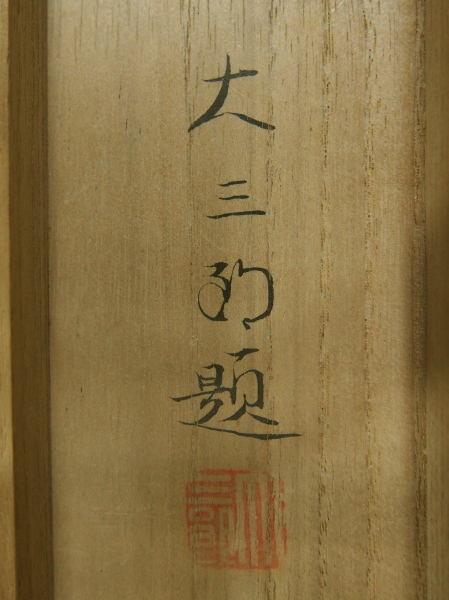 大三郎題